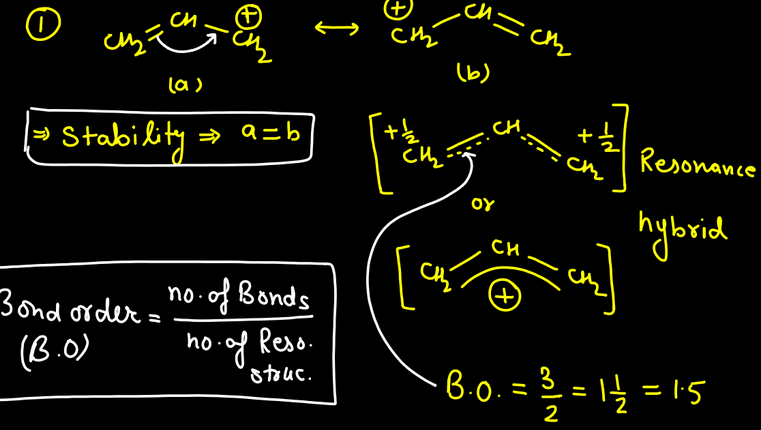 ①
CH₂=CH–CH₂ ⊕ ↔ ⊕ CH₂–CH=CH₂
(a) (b)
⇒ Stability ⇒ a = b
[+½ CH₂ CH CH₂ +½] Resonance
hybrid
or
[CH₂ CH CH₂ ⊕]
Bond order = no. of Bonds
(B.O) no. of Reso.
struc.
B.O. = 3/2 = 1 1/2 = 1.5